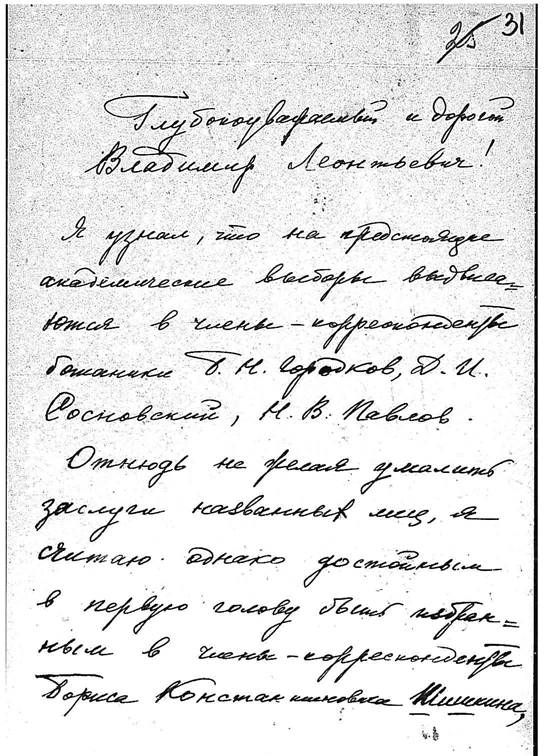 25 31
Глубокоуважаемый и дорогой
Владимир Леонтьевич!
Я узнал, что на предстоящие
академические выборы выдвига=
ются в члены-корреспонденты
ботаники Б. Н. Городков, Д. И.
Сосновский, Н. В. Павлов.
Отнюдь не желая умалить
заслуги названных лиц, я
считаю однако достойным
в первую голову быть избран=
ным в члены-корреспонденты
Бориса Константиновича Шишкина,